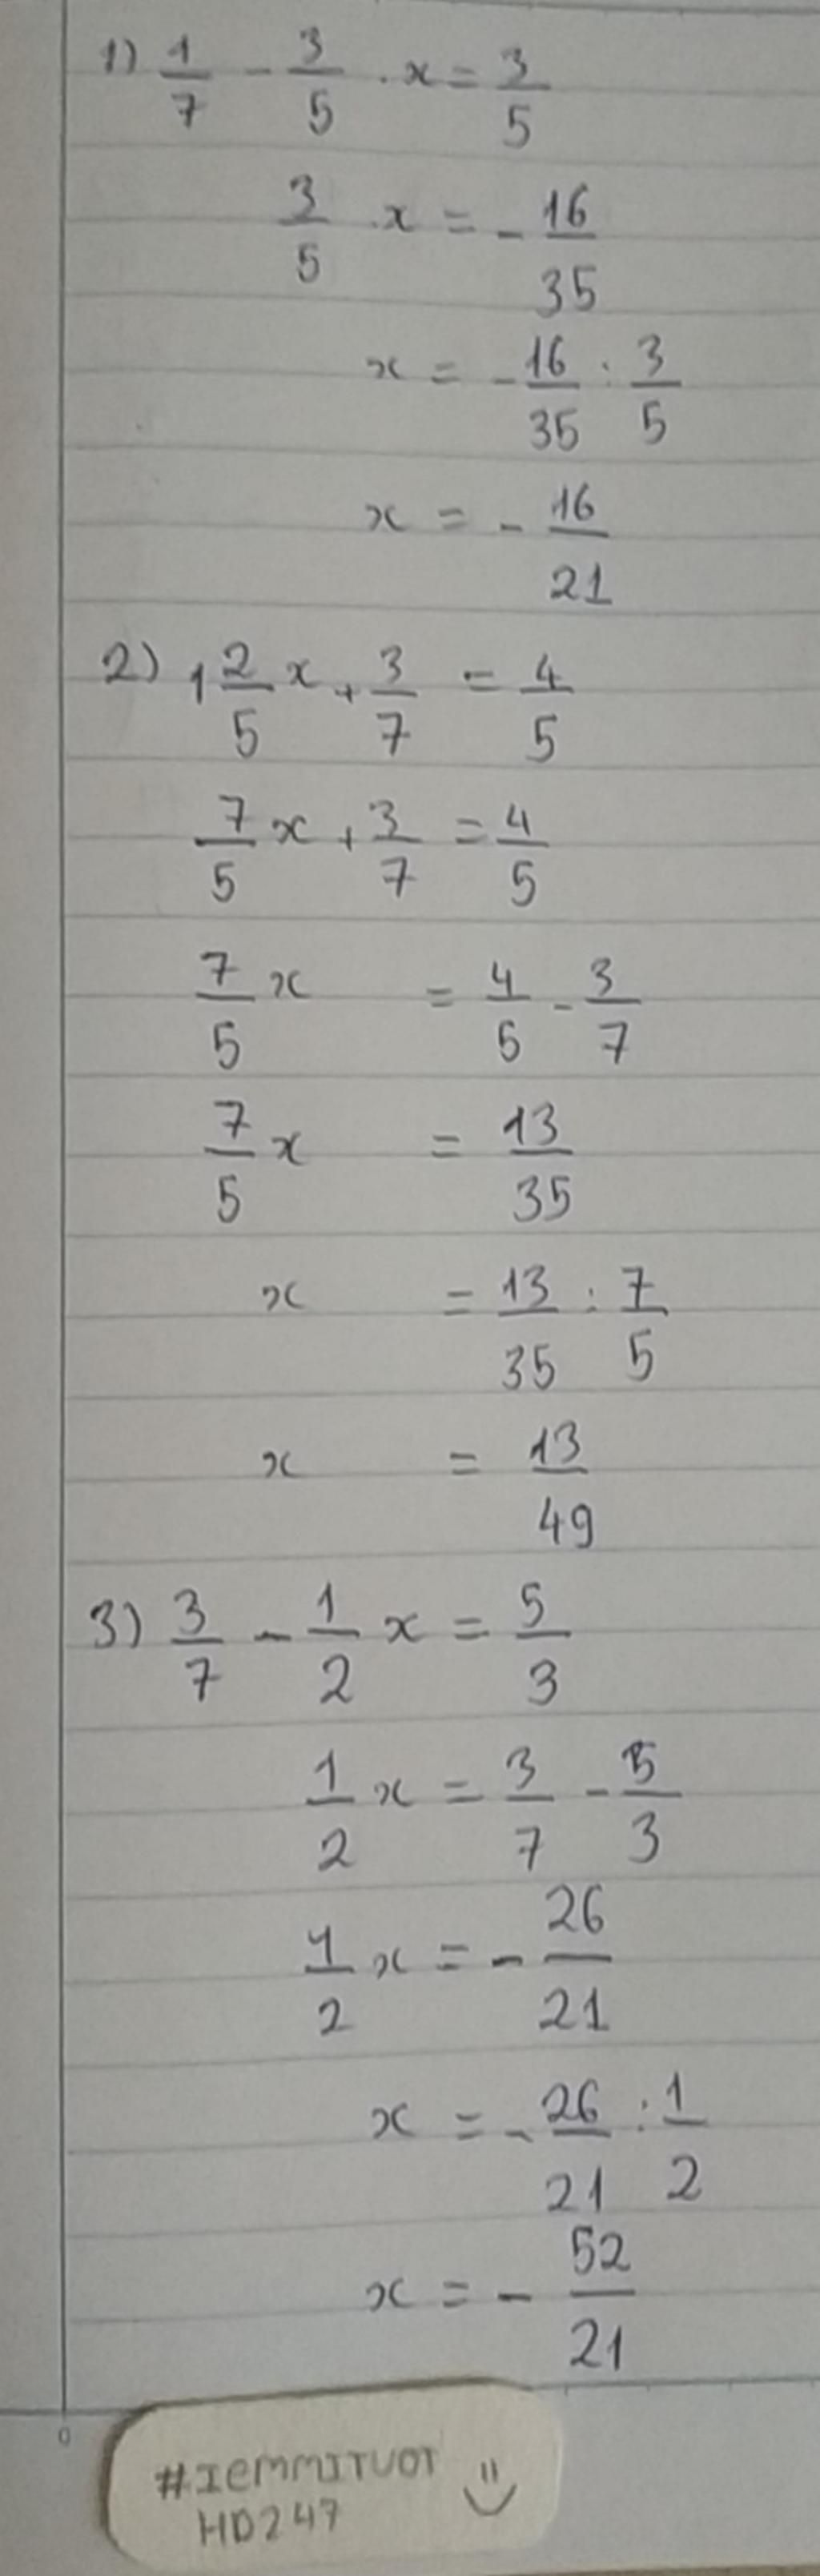 1) 1/7 - 3/5 . x = 3/5
3/5 . x = - 16/35
x = - 16/35 : 3/5
x = - 16/21
2) 1 2/5 x + 3/7 = 4/5
7/5 x + 3/7 = 4/5
7/5 x = 4/5 - 3/7
7/5 x = 13/35
x = 13/35 : 7/5
x = 13/49
3) 3/7 - 1/2 x = 5/3
1/2 x = 3/7 - 5/3
1/2 x = - 26/21
x = - 26/21 : 1/2
x = - 52/21
0
#IEMMITUOT
HD247